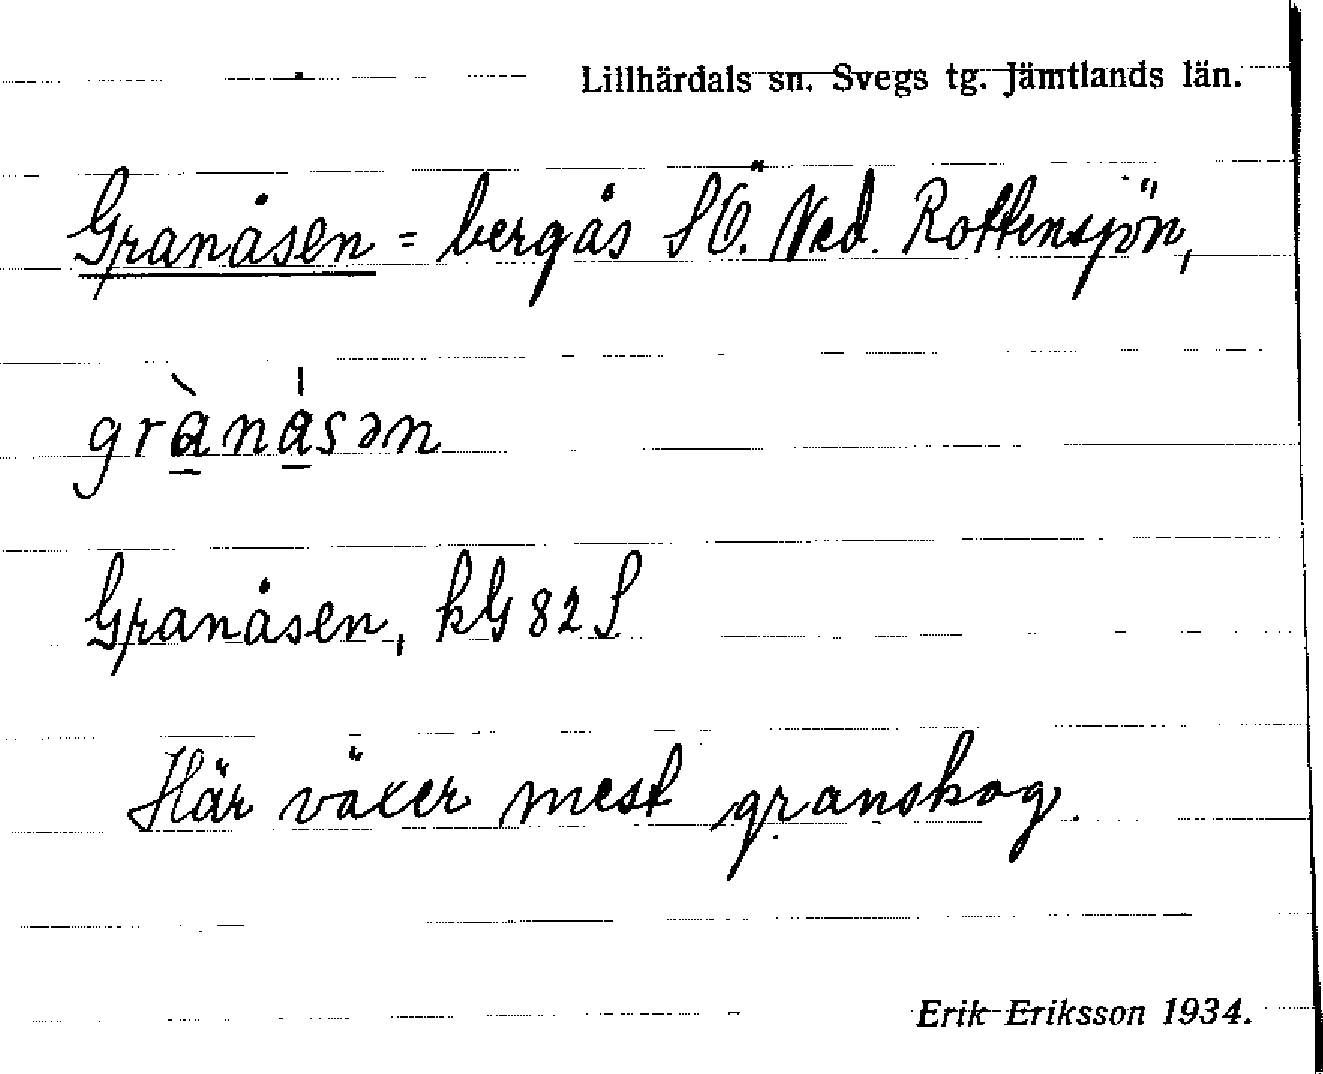 Lillhärdals sn. Svegs tg. Jämtlands län.
Granåsen = bergås SÖ. Ned. Rottensjön,
grànásən
Granåsen, kG 82 S
Här växer mest granskog.
Erik Eriksson 1934.